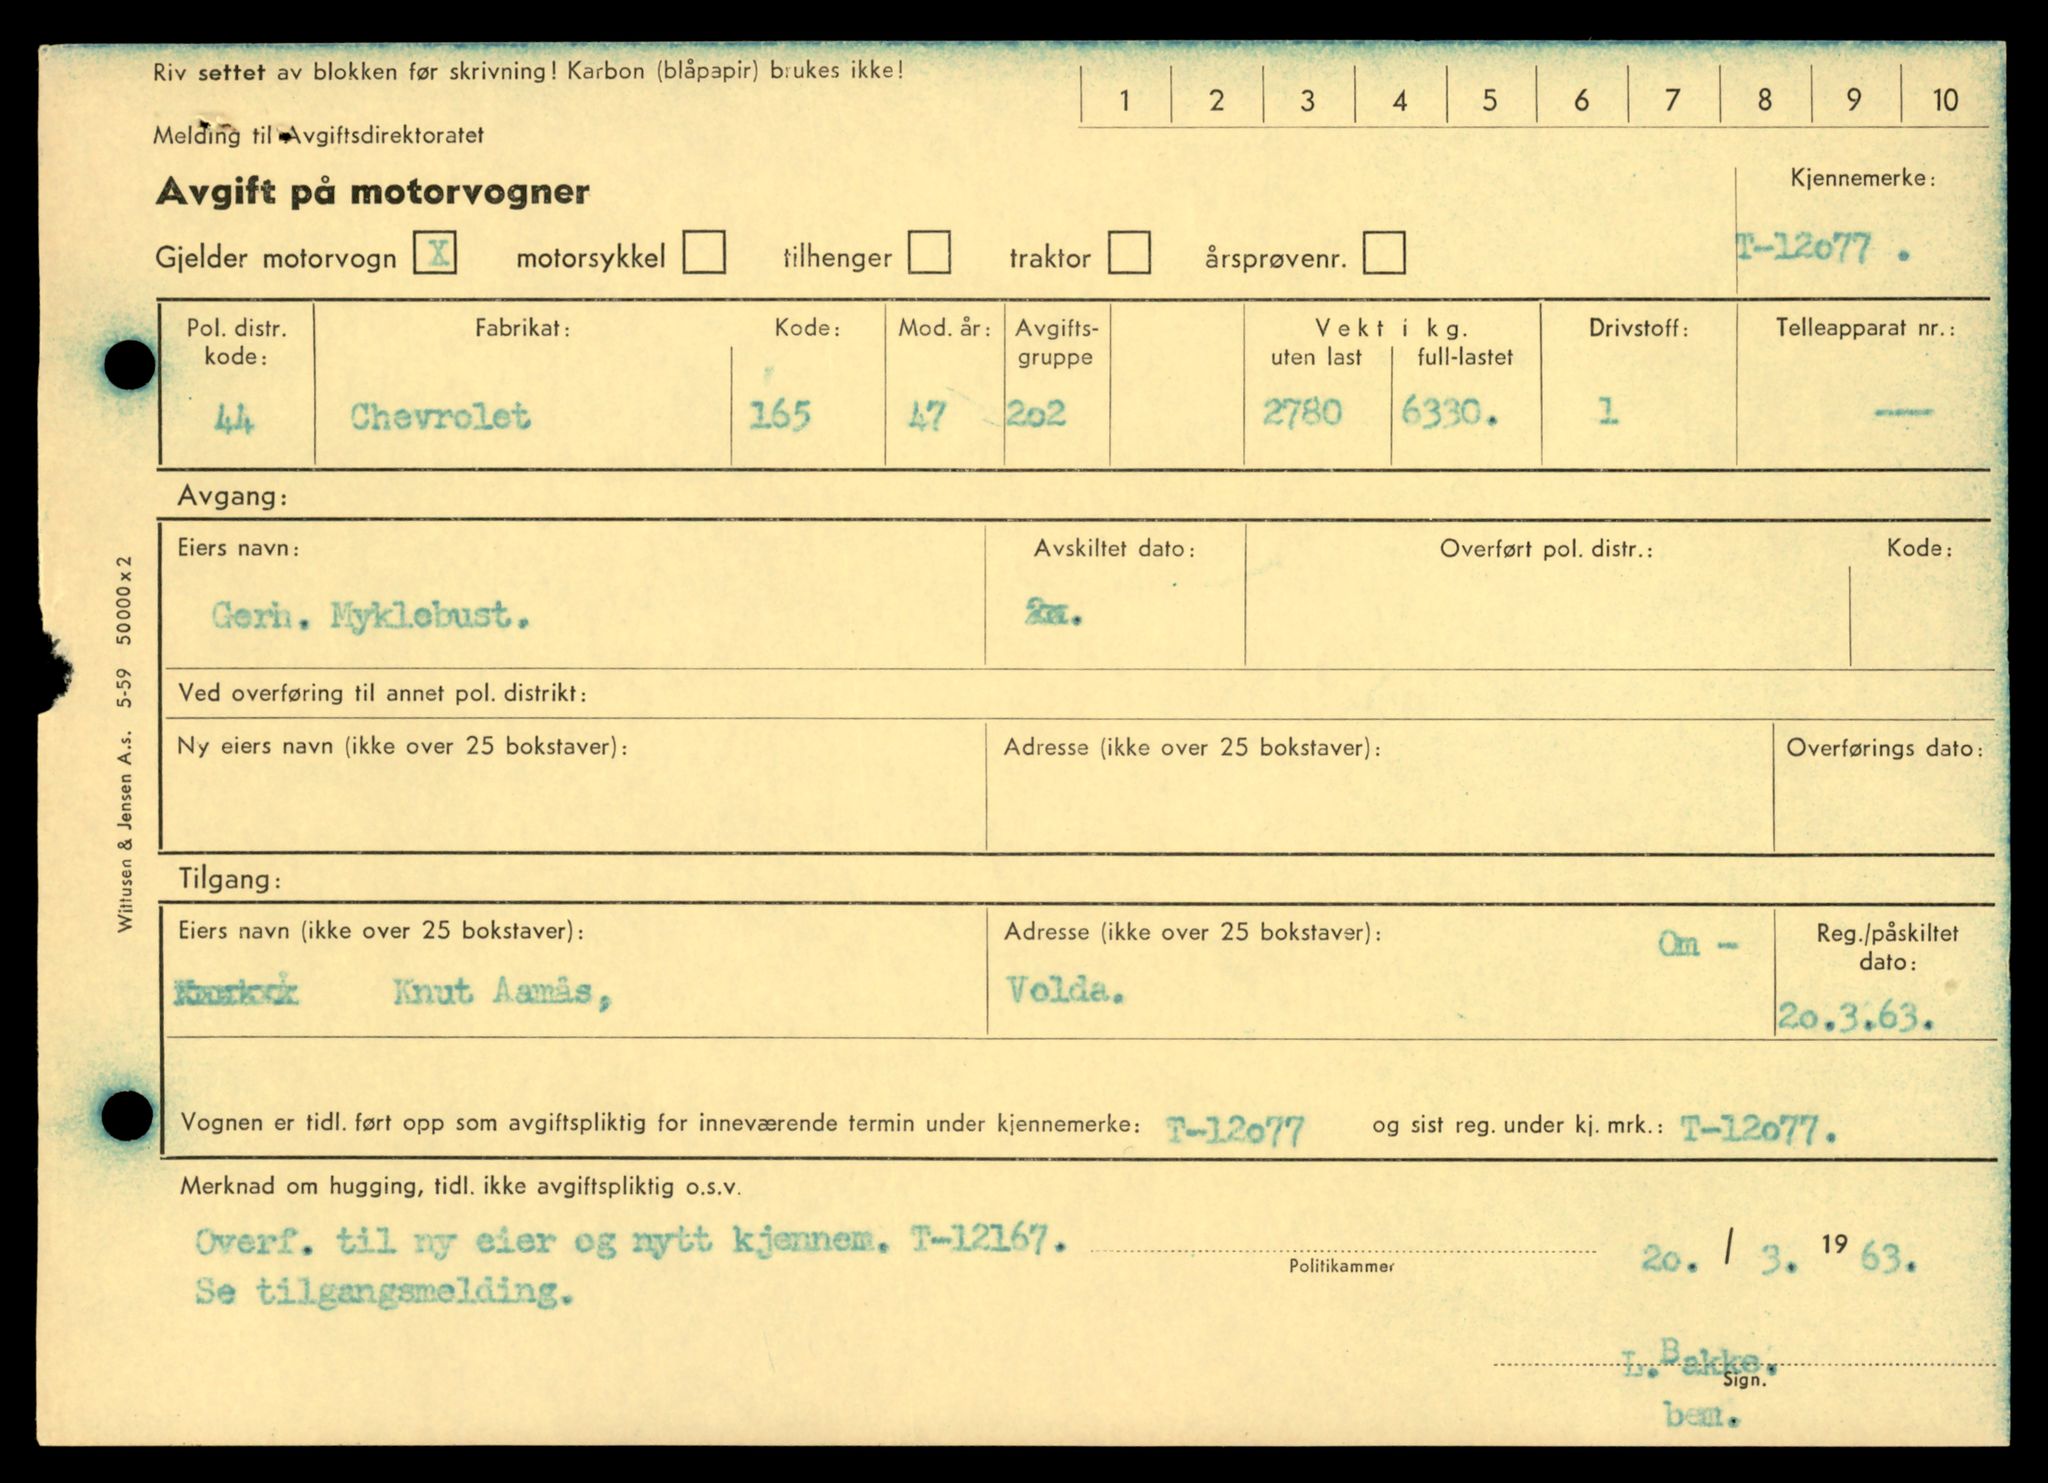 Riv settet av blokken før skrivning! Karbon (blåpapir) brukes ikke!
1 2 3 4 5 6 7 8 9 10
Melding til Avgiftsdirektoratet
Avgift på motorvogner
Kjennemerke:
Gjelder motorvogn X motorsykkel tilhenger traktor årsprøvenr.
T-12o77 .
Pol. distr. kode:
Fabrikat:
Kode:
Mod. år:
Avgifts-
gruppe
Vekt i kg.
uten last
full-lastet
Drivstoff:
Telleapparat nr.:
44 Chevrolet 165 47 2o2 2780 6330. 1 ----
Avgang:
Eiers navn:
Avskiltet dato:
Overført pol. distr.:
Kode:
Gerh. Myklebust.
Ved overføring til annet pol. distrikt:
Ny eiers navn (ikke over 25 bokstaver):
Adresse (ikke over 25 bokstaver):
Overførings dato:
Tilgang:
Eiers navn (ikke over 25 bokstaver):
Adresse (ikke over 25 bokstaver):
Om -
Reg./påskiltet
dato:
Knut Aamås,
Volda.
2o.3.63.
Vognen er tidl. ført opp som avgiftspliktig for inneværende termin under kjennemerke: T-12o77 og sist reg. under kj. mrk.: T-12o77.
Merknad om hugging, tidl. ikke avgiftspliktig o.s.v.
Overf. til ny eier og nytt kjennem. T-12167.
Politikammer
2o. / 3. 19 63.
Se tilgangsmelding.
L. Bakke.
Sign.
bem.
Wittusen & Jensen A.s. 5-59 50000x2